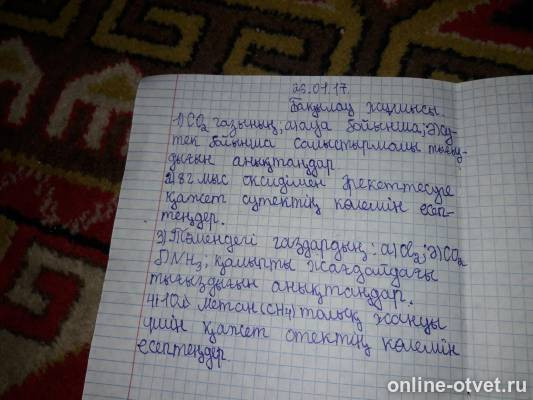 25.01.17.
Бақылау жұмысы.
1) CO2 газының; а) ауа бойынша; ә) су-
тек бойынша салыстырмалы тығыз-
дығын анықтаңдар
2) 8г мыс оксидімен әрекеттесуге
қажет сутектің көлемін есеп-
теңдер.
3) Төмендегі газдардың: а) Cl2; ә) CO2
б) NH3; қалыпты жағдайдағы
тығыздығын анықтаңдар.
4) 10л метан (CH4) толық жануы
үшін қажет отектің көлемін
есептеңдер
online-otvet.ru